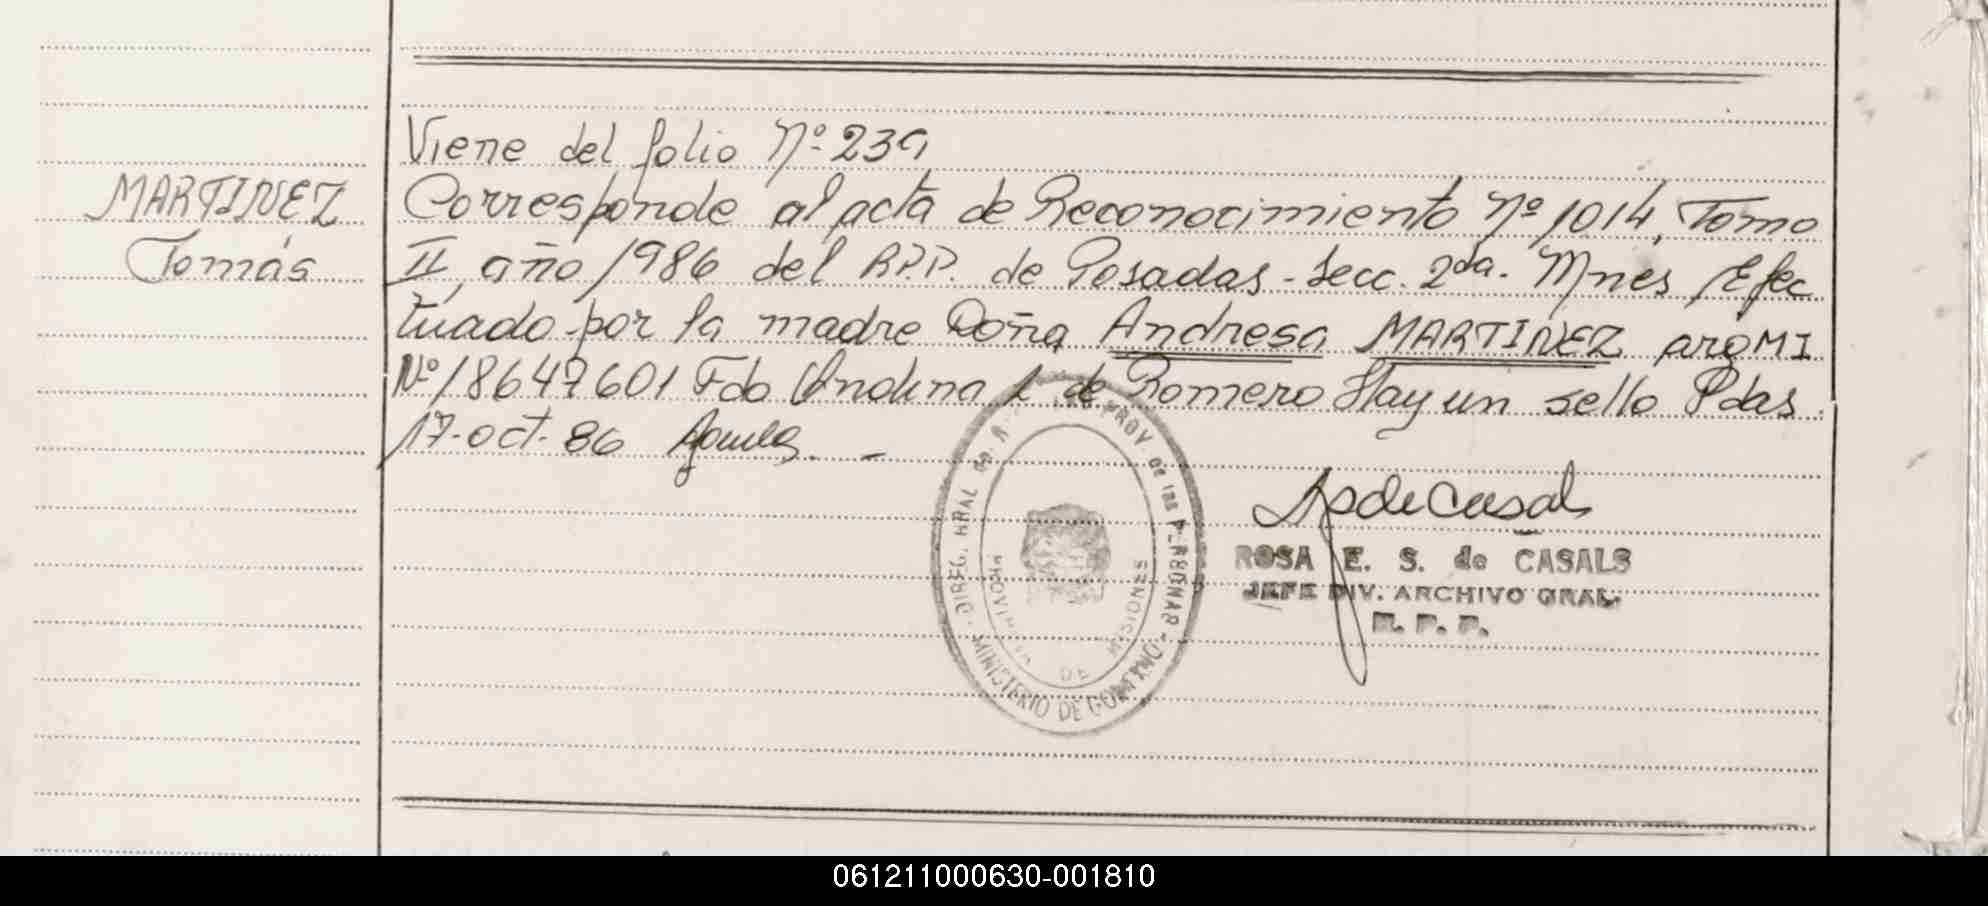 Viene del folio Nº 239
MARTINEZ
Tomás
Corresponde al acta de Reconocimiento Nº 1014, Tomo
II, año 1986 del R.P.P. de Posadas - Secc. 2da. Mnes Efec
tuado por la madre Doña Andresa MARTINEZ arg MI
Nº 8647601 Fdo de Romero Hay un sello Pdas
17-oct-86
DIREG. GRAL PROV. de las PERSONAS
MINISTERIO DE GOBIERNO
PROVINCIA DE MISIONES
ROSA E. S. de CASALS
JEFE DIV. ARCHIVO GRAL.
R. P. P.
061211000630-001810